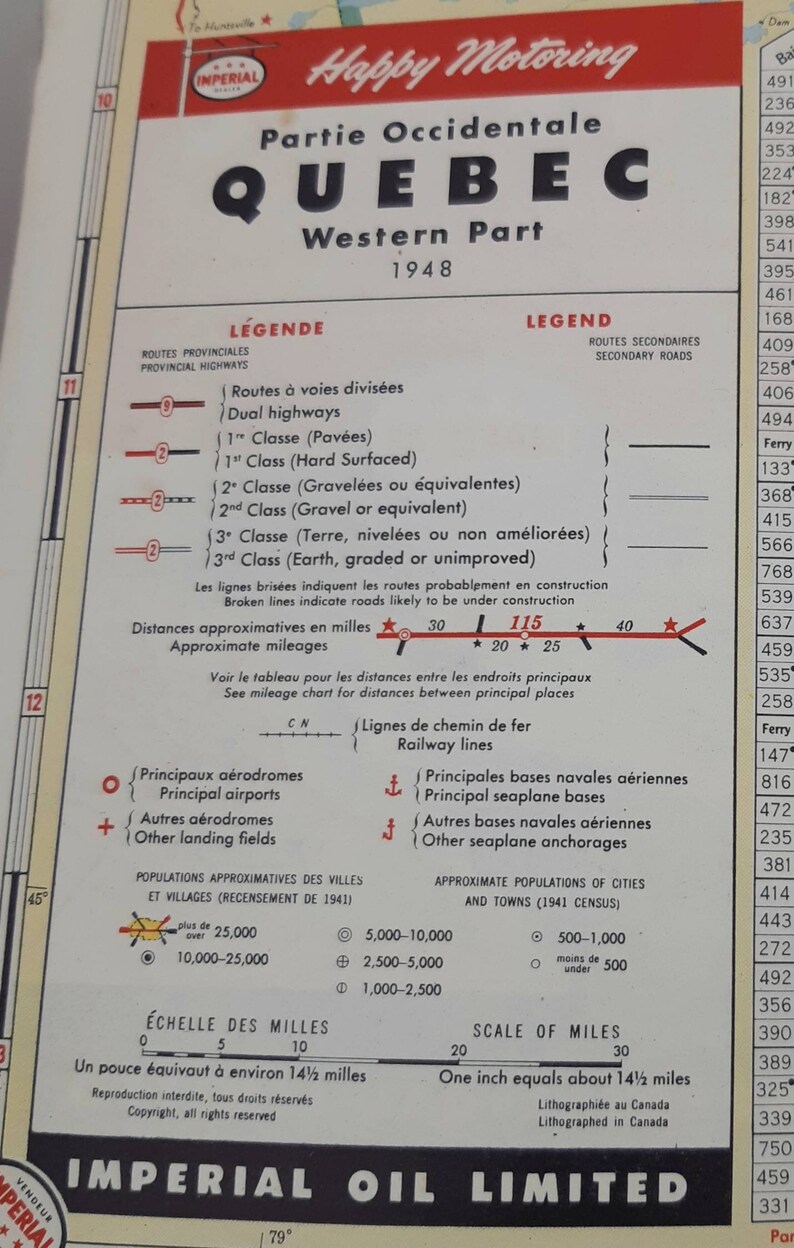 To Huntsville
Dam
10
IMPERIAL
DEALER
Happy Motoring
Partie Occidentale
QUEBEC
Western Part
1948
LÉGENDE
LEGEND
ROUTES PROVINCIALES
PROVINCIAL HIGHWAYS
ROUTES SECONDAIRES
SECONDARY ROADS
11
9
Routes à voies divisées
Dual highways
2
1re Classe (Pavées)
1st Class (Hard Surfaced)
2
2e Classe (Gravelées ou équivalentes)
2nd Class (Gravel or equivalent)
2
3e Classe (Terre, nivelées ou non améliorées)
3rd Class (Earth, graded or unimproved)
Les lignes brisées indiquent les routes probablement en construction
Broken lines indicate roads likely to be under construction
Distances approximatives en milles
Approximate mileages
30 115 40
20 25
Voir le tableau pour les distances entre les endroits principaux
See mileage chart for distances between principal places
12
C N
Lignes de chemin de fer
Railway lines
Principaux aérodromes
Principal airports
Principales bases navales aériennes
Principal seaplane bases
Autres aérodromes
Other landing fields
Autres bases navales aériennes
Other seaplane anchorages
45°
POPULATIONS APPROXIMATIVES DES VILLES
ET VILLAGES (RECENSEMENT DE 1941)
APPROXIMATE POPULATIONS OF CITIES
AND TOWNS (1941 CENSUS)
plus de
over 25,000
5,000–10,000
500–1,000
10,000–25,000
2,500–5,000
moins de
under 500
1,000–2,500
ÉCHELLE DES MILLES
SCALE OF MILES
0 5 10 20 30
Un pouce équivaut à environ 14½ milles
One inch equals about 14½ miles
Reproduction interdite, tous droits réservés
Copyright, all rights reserved
Lithographiée au Canada
Lithographed in Canada
IMPERIAL OIL LIMITED
VENDEUR
79°
491
236
492
353
224
182
398
541
395
461
168
409
258
406
494
Ferry
133
368
415
566
768
539
637
459
535
258
Ferry
147
816
472
235
381
414
443
272
492
356
390
389
325
339
750
459
331